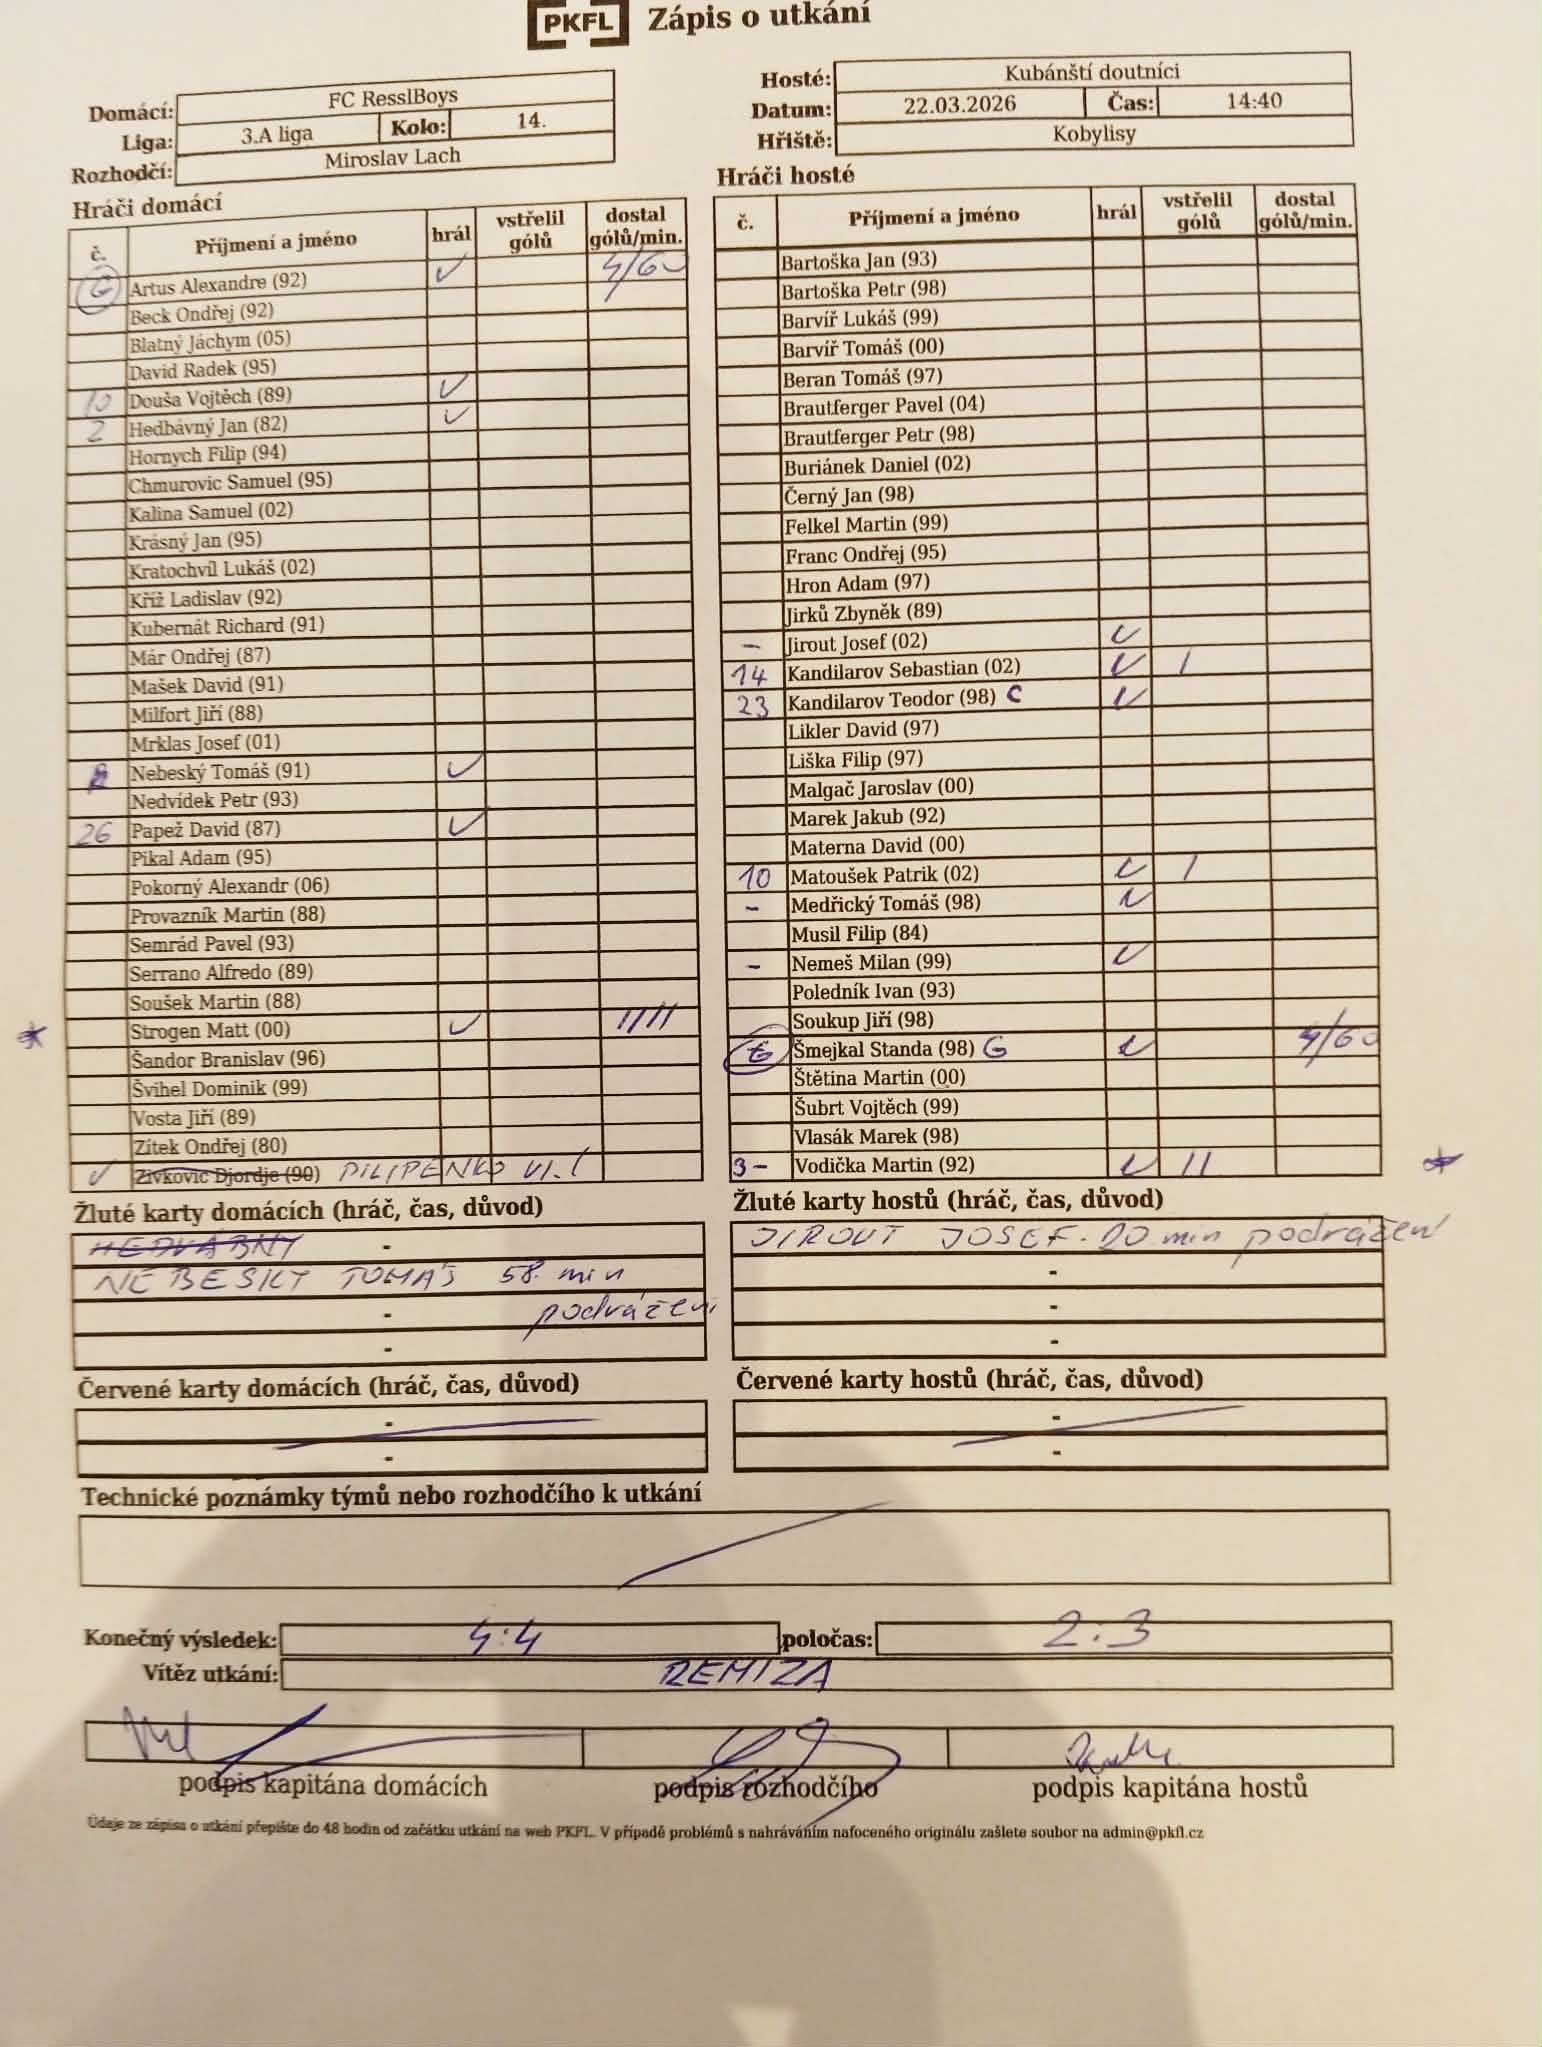 PKFL Zápis o utkání
Domácí: FC ResslBoys
Liga: 3.A liga Kolo: 14.
Rozhodčí: Miroslav Lach
Hosté: Kubánští doutníci
Datum: 22.03.2026 Čas: 14:40
Hřiště: Kobylisy
Hráči domácí
č. Příjmení a jméno hrál vstřelil gólů dostal gólů/min.
G Artus Alexandre (92) ✓ 4/60
Beck Ondřej (92)
Blatný Jáchym (05)
David Radek (95)
10 Douša Vojtěch (89) ✓
2 Hedbávný Jan (82) ✓
Hornych Filip (94)
Chmurovic Samuel (95)
Kalina Samuel (02)
Krásný Jan (95)
Kratochvíl Lukáš (02)
Kříž Ladislav (92)
Kubernát Richard (91)
Már Ondřej (87)
Mašek David (91)
Milfort Jiří (88)
Mrklas Josef (01)
Nebeský Tomáš (91) ✓
Nedvídek Petr (93)
26 Papež David (87) ✓
Pikal Adam (95)
Pokorný Alexandr (06)
Provazník Martin (88)
Semrád Pavel (93)
Serrano Alfredo (89)
Soušek Martin (88)
* Strogen Matt (00) ✓ ////
Šandor Branislav (96)
Švihel Dominik (99)
Vosta Jiří (89)
Zítek Ondřej (80)
✓ Živkovic Djordje (90) PILIPENKO Vl.
Hráči hosté
č. Příjmení a jméno hrál vstřelil gólů dostal gólů/min.
Bartoška Jan (93)
Bartoška Petr (98)
Barvíř Lukáš (99)
Barvíř Tomáš (00)
Beran Tomáš (97)
Brautferger Pavel (04)
Brautferger Petr (98)
Buriánek Daniel (02)
Černý Jan (98)
Felkel Martin (99)
Franc Ondřej (95)
Hron Adam (97)
Jirků Zbyněk (89)
- Jirout Josef (02) ✓
14 Kandilarov Sebastian (02) ✓ /
23 Kandilarov Teodor (98) C ✓
Likler David (97)
Liška Filip (97)
Malgač Jaroslav (00)
Marek Jakub (92)
Materna David (00)
10 Matoušek Patrik (02) ✓ /
- Medřický Tomáš (98) ✓
Musil Filip (84)
- Nemeš Milan (99) ✓
Poledník Ivan (93)
Soukup Jiří (98)
G Šmejkal Standa (98) G ✓ 4/60
Štětina Martin (00)
Šubrt Vojtěch (99)
Vlasák Marek (98)
3- Vodička Martin (92) ✓ // *
Žluté karty domácích (hráč, čas, důvod)
HEDVÁBNÝ -
NEBESKÝ TOMÁŠ 58. min
- podrážení
-
Žluté karty hostů (hráč, čas, důvod)
JIROUT JOSEF - 20 min podrážení
-
-
-
Červené karty domácích (hráč, čas, důvod)
-
-
Červené karty hostů (hráč, čas, důvod)
-
-
Technické poznámky týmů nebo rozhodčího k utkání
Konečný výsledek: 4:4 poločas: 2:3
Vítěz utkání: REMIZA
podpis kapitána domácích podpis rozhodčího podpis kapitána hostů
Údaje ze zápisu o utkání přepište do 48 hodin od začátku utkání na web PKFL. V případě problémů s nahráváním nafoceného originálu zašlete soubor na admin@pkfl.cz